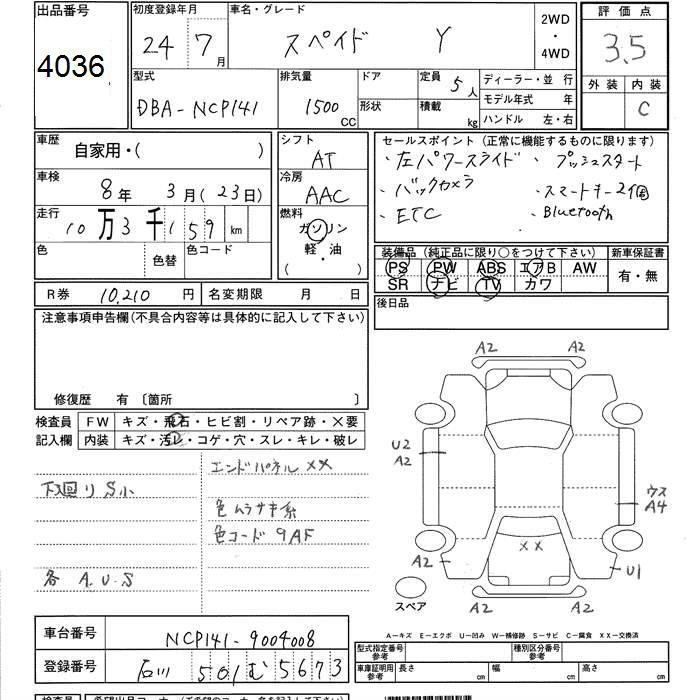 出品番号 初度登録年月 車名・グレード 2WD・4WD 評価点
4036 24 7月 スペイド Y 3.5
外装 内装
C
型式 排気量 ドア 定員 5人 ディーラー・並行
DBA-NCP141 1500cc 形状 積載 kg モデル年式 年
ハンドル 左・右
車歴 自家用・( ) シフト AT
車検 8年 3月(23日) 冷房 AAC
走行 10万3千159km 燃料 ガソリン 軽・油 ( )
色 色替 色コード
R券 10,210円 名変期限 月 日
セールスポイント(正常に機能するものに限ります)
・左パワースライド ・プッシュスタート
・バックカメラ ・スマートキー2個
・ETC ・Bluetooth
装備品(純正品に限り○をつけて下さい) 新車保証書
PS PW ABS エアB AW 有・無
SR ナビ TV カワ
後日品
注意事項申告欄(不具合内容等は具体的に記入して下さい)
修復歴 有 〔箇所 〕
検査員 FW キズ・飛石・ヒビ割・リペア跡・×要
記入欄 内装 キズ・汚レ・コゲ・穴・スレ・キレ・破レ
エンドパネル ××
下廻りS小
色 ムラサキ系
色コード 9AF
各 A.U.S
A2 A2
U2
A2
ウス
A4
××
A2 U1
スペア
A2 A2
車台番号 NCP141-9004008
登録番号 石川 501 む 5673
A-キズ E-エクボ U-凹み W-補修跡 S-サビ C-腐食 XX-交換済
型式指定番号 参考 種別区分番号 参考
車庫証明用 参考 長さ cm 幅 cm 高さ cm